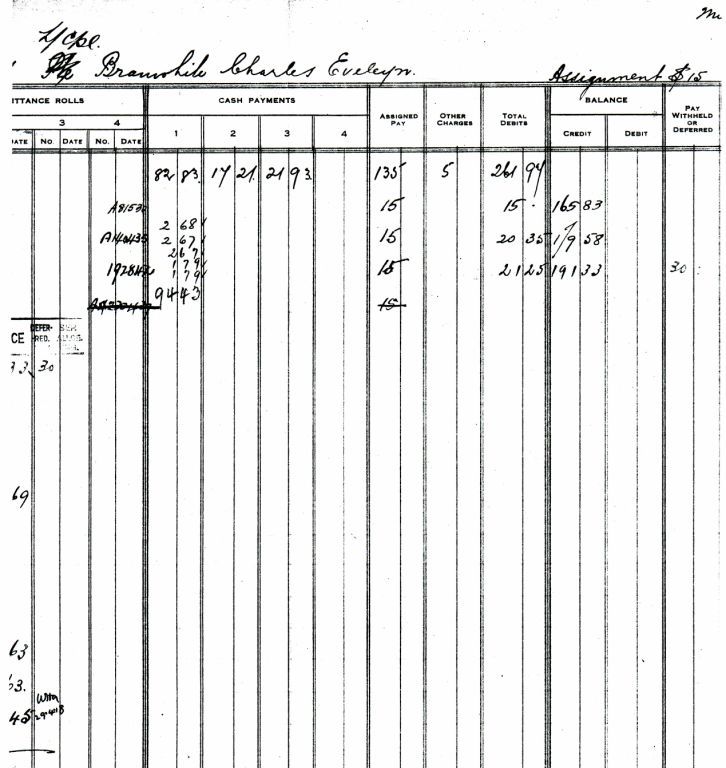 L/Cpl.
Charles Evelyn.
Assignment $15
ITTANCE ROLLS CASH PAYMENTS ASSIGNED PAY OTHER CHARGES TOTAL DEBITS BALANCE PAY WITHHELD OR DEFERRED
3 4 1 2 3 4 CREDIT DEBIT
DATE NO. DATE NO. DATE
82 83 17 21 21 93 135 5 261 97
A81532 15 15 165 83
2 68
A140435 2 67 15 20 35 179 58
2 67
1 79 15 21 25 191 33 30
1 79
94 43
15
CE DEFER-RED.
33 30
69
63
63.
45